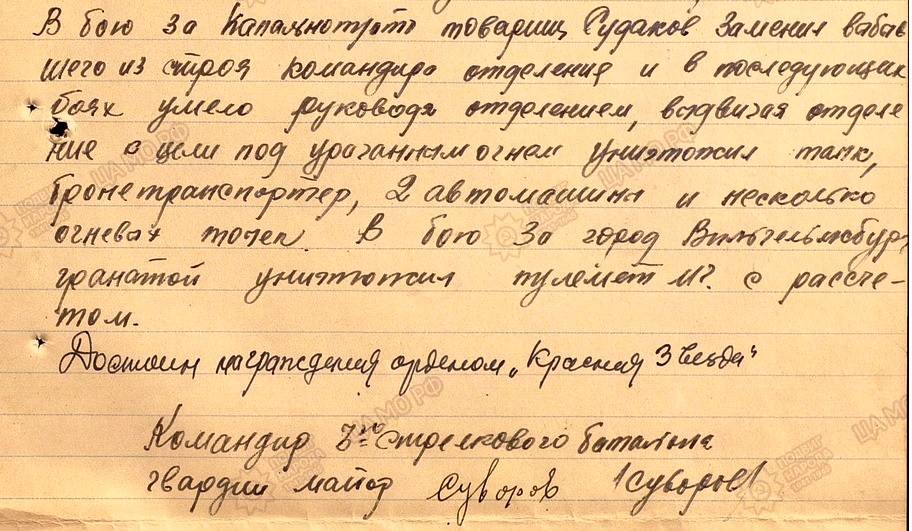 В бою за Капальнотуто товарищ Судаков заменил выбыв
шего из строя командира отделения и в последующих
боях умело руководя отделением, выдвигая отделе
ние с цели под ураганным огнем уничтожил танк,
бронетранспортер, 2 автомашины и несколько
огневых точек. В бою за город Вильгельмсбург
гранатой уничтожил пулемет МГ. с рассче-
том.
Достоин награждения орденом „Красная Звезда"
Командир 3го стрелкового батальона
гвардии майор Суворов /Суворов/
ЦАМО РФ
ПОДВИГ НАРОДА